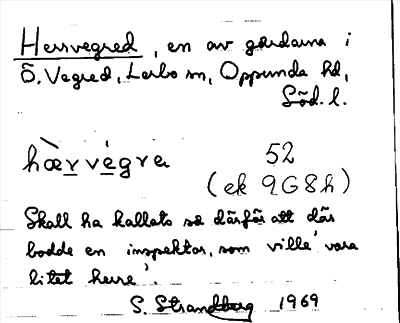 Herrvegred, en av gårdarna i
Ö. Vegred, Lerbo sn, Oppunda hd,
Söd. l.
hæ̀rvégrei 52
(ek 9G8h)
Skall ha kallats så därför att där
bodde en inspektor, som ville 'vara
litet herre'.
S. Strandberg 1969